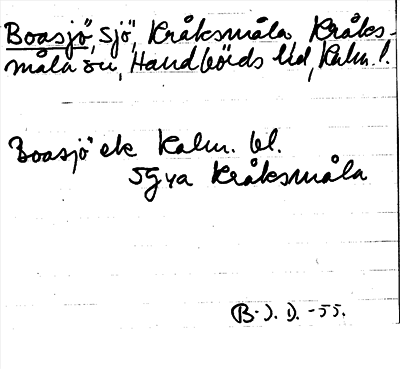 Boasjö, sjö, Kråksmåla, Kråks-
måla sn, Handbörds hd, Kalm. l.
Boasjö ek Kalm. bl.
5G ya Kråksmåla
B-J. D. -55.